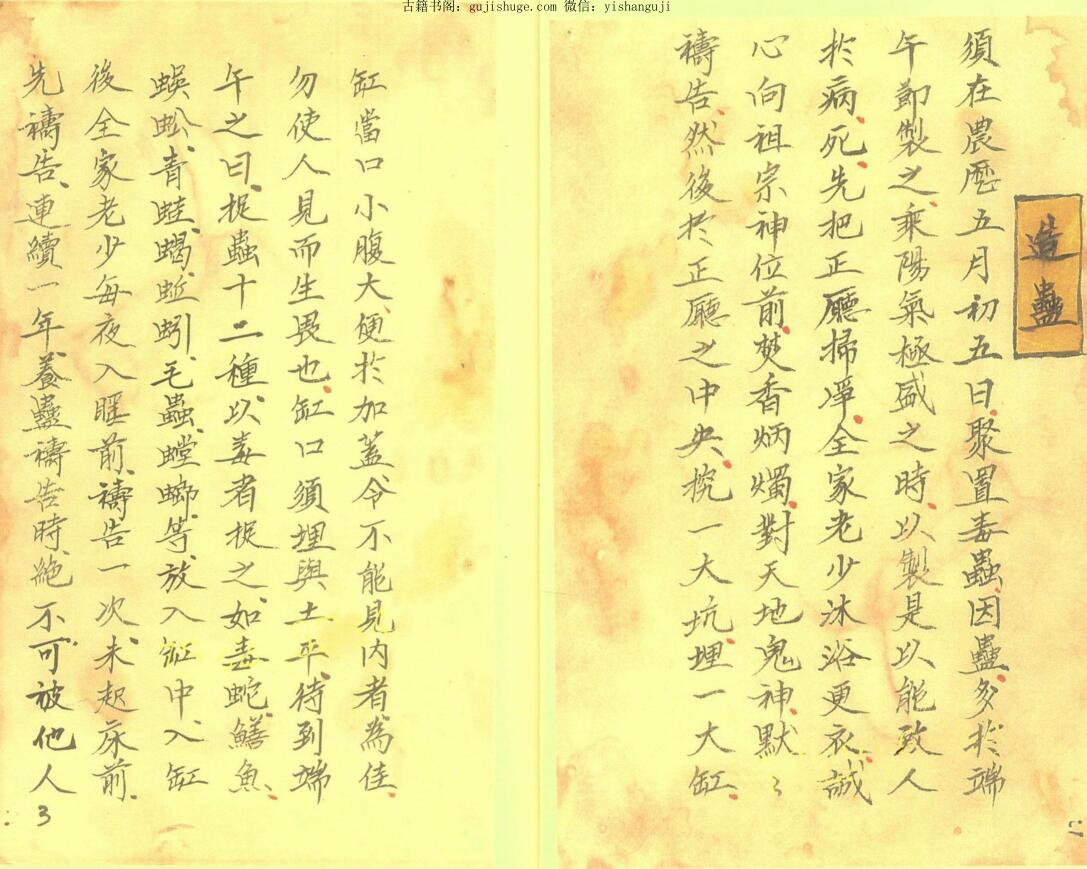 古籍书阁：gujishuge.com 微信：yishanguji
造蠱
須在農曆五月初五日聚置毒蟲、因蠱多於端
午節製之、乘陽氣極盛之時、以製是以能致人
於病死、先把正廳掃凈、全家老少沐浴更衣、誠
心向祖宗神位前、焚香炳燭、對天地鬼神、默々
禱告、然後於正廳之中央、挖一大坑、埋一大缸、
缸當口小腹大、便於加蓋、令不能見內者為佳、
勿使人見而生畏也、缸口須埋與土平、待到端
午之日、捉蟲十二種、以毒者捉之、如毒蛇、鱔魚、
蜈蚣、青蛙、蝎、蚯蚓、毛蟲、螳螂等、放入缸中、入缸
後全家老少每夜入睡前、禱告一次、未起床前、
先禱告、連續一年、養蠱禱告時、絕不可被他人
3